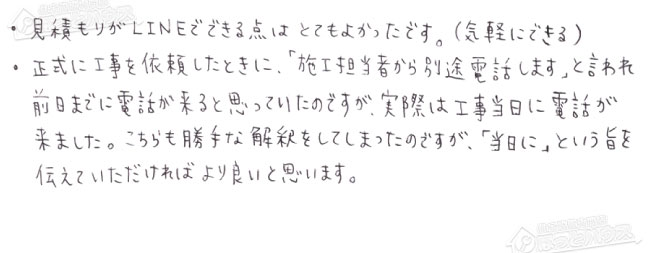 ・見積もりがLINEでできる点はとてもよかったです。(気軽にできる)
・正式に工事を依頼したときに、「施工担当者から別途電話します」と言われ
前日までに電話が来ると思っていたのですが、実際は工事当日に電話が
来ました。こちらも勝手な解釈をしてしまったのですが、「当日に」という旨を
伝えていただければより良いと思います。